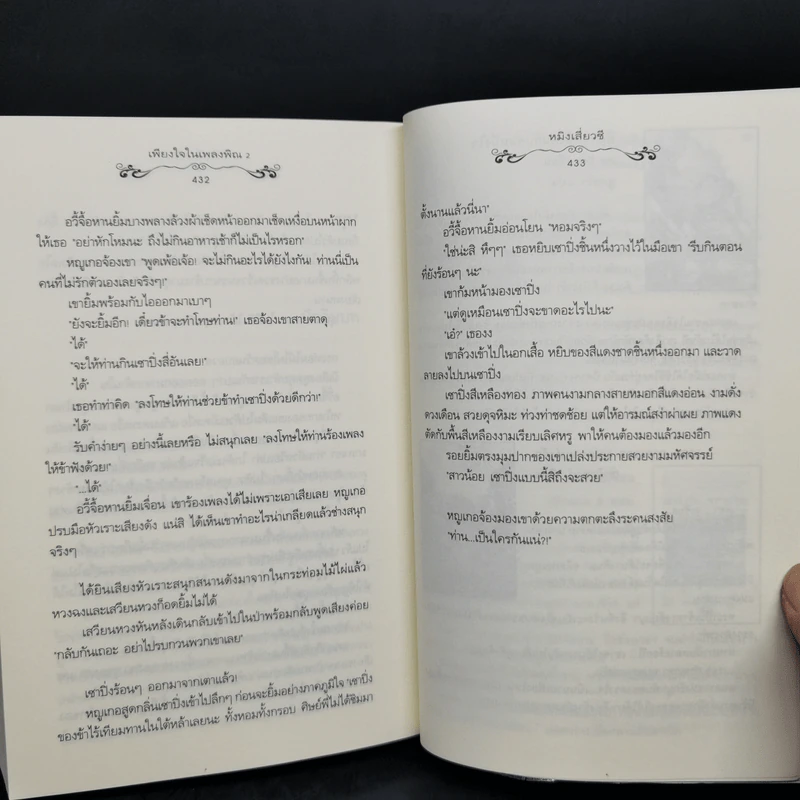 เพียงใจในเพลงพิณ 2
432
อวี้จื้อหานยิ้มบางพลางล้วงผ้าเช็ดหน้าออกมาเช็ดเหงื่อบนหน้าผาก
ให้เธอ "อย่าหักโหมนะ ถึงไม่กินอาหารเช้าก็ไม่เป็นไรหรอก"
หญูเกอจ้องเขา "พูดเพ้อเจ้อ! จะไม่กินอะไรได้ยังไงกัน! ท่านนี่เป็น
คนที่ไม่รักตัวเองเลยจริงๆ!"
เขายิ้มพร้อมกับไอออกมาเบาๆ
"ยังจะยิ้มอีก! เดี๋ยวข้าจะทำโทษท่าน!" เธอจ้องเขาสายตาดุ
"ได้"
"จะให้ท่านกินเซาปิ่งสี่อันเลย!"
"ได้"
เธอทำท่าคิด "ลงโทษให้ท่านช่วยข้าทำเซาปิ่งด้วยดีกว่า!"
"ได้"
รับคำง่ายๆ อย่างนี้เลยหรือ ไม่สนุกเลย "ลงโทษให้ท่านร้องเพลง
ให้ข้าฟังด้วย!"
"...ได้"
อวี้จื้อหานยิ้มเจื่อน เขาร้องเพลงได้ไม่เพราะเอาเสียเลย หญูเกอ
ปรบมือหัวเราะเสียงดัง แน่สิ ได้เห็นเขาทำอะไรน่าเกลียดแล้วช่างสนุก
จริงๆ
ได้ยินเสียงหัวเราะสนุกสนานดังมาจากในกระท่อมไม้ไผ่แล้ว
หวงฉงและเสวียนหวงก็อดยิ้มไม่ได้
เสวียนหวงหันหลังเดินกลับเข้าไปในป่าพร้อมกลับพูดเสียงค่อย
"กลับกันเถอะ อย่าไปรบกวนพวกเขาเลย"
เซาปิ่งร้อนๆ ออกมาจากเตาแล้ว!
หญูเกอสูดกลิ่นเซาปิ่งเข้าไปลึกๆ ก่อนจะยิ้มอย่างภาคภูมิใจ "เซาปิ่ง
ของข้าไร้เทียมทานในใต้หล้าเลยนะ ทั้งหอมทั้งกรอบ ศิษย์พี่ไม่ได้ชิมมา
หมิงเสี่ยวซี
433
ตั้งนานแล้วนี่นา"
อวี้จื้อหานยิ้มอ่อนโยน "หอมจริงๆ"
"ใช่น่ะสิ หึๆๆ" เธอหยิบเซาปิ่งชิ้นหนึ่งวางไว้ในมือเขา "รีบกินตอน
ที่ยังร้อนๆ นะ"
เขาก้มหน้ามองเซาปิ่ง
"แต่ดูเหมือนเซาปิ่งจะขาดอะไรไปนะ"
"เอ๋?" เธองง
เขาล้วงเข้าไปในอกเสื้อ หยิบของสีแดงชาดชิ้นหนึ่งออกมา และวาด
ลายลงไปบนเซาปิ่ง
เซาปิ่งสีเหลืองทอง ภาพคนงามกลางสายหมอกสีแดงอ่อน งามดั่ง
ดวงเดือน สวยดุจหิมะ ท่วงท่าชดช้อย แต่ให้อารมณ์สง่าผ่าเผย ภาพแดง
ตัดกับพื้นสีเหลืองงามเรียบเลิศหรู พาให้คนต้องมองแล้วมองอีก
รอยยิ้มตรงมุมปากของเขาเปล่งประกายสวยงามมหัศจรรย์
"สาวน้อย เซาปิ่งแบบนี้สิถึงจะสวย"
หญูเกอจ้องมองเขาด้วยความตกตะลึงระคนสงสัย
"ท่าน...เป็นใครกันแน่?!"